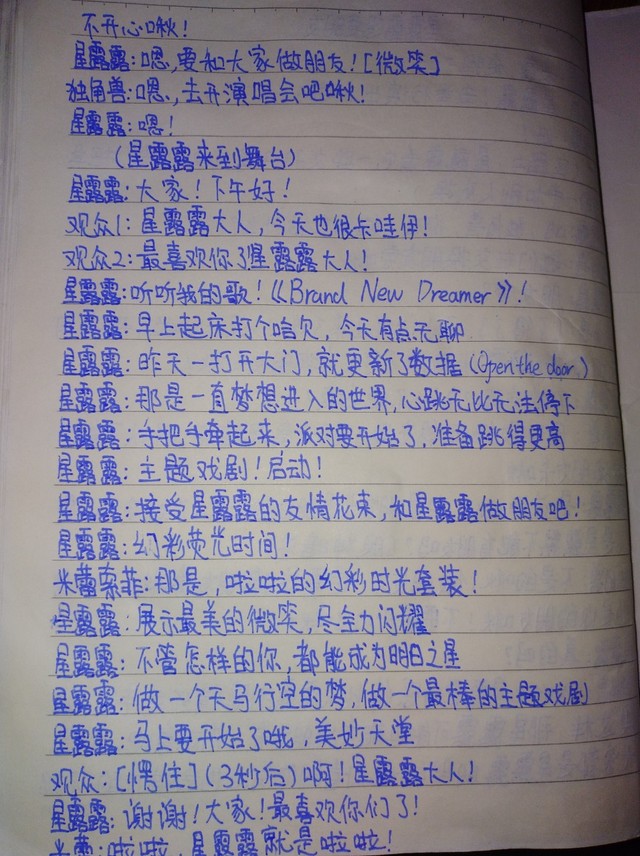 不开心啾!
星露露:嗯,要和大家做朋友![微笑]
独角兽:嗯,去开演唱会吧啾!
星露露:嗯!
(星露露来到舞台)
星露露:大家!下午好!
观众1:星露露大人,今天也很卡哇伊!
观众2:最喜欢你了星露露大人!
星露露:听听我的歌!《Brand New Dreamer》!
星露露:早上起床打个哈欠,今天有点无聊
星露露:昨天一打开大门,就更新了数据(Open the door)
星露露:那是一直梦想进入的世界,心跳无比无法停下
星露露:手把手牵起来,派对要开始了,准备跳得更高
星露露:主题戏剧!启动!
星露露:接受星露露的友情花束,和星露露做朋友吧!
星露露:幻彩荧光时间!
米蕾索菲:那是,啦啦的幻彩时光套装!
星露露:展示最美的微笑,尽全力闪耀
星露露:不管怎样的你,都能成为明日之星
星露露:做一个天马行空的梦,做一个最棒的主题戏剧
星露露:马上要开始了哦,美妙天堂
观众:[愣住](3秒后)啊!星露露大人!
星露露:谢谢!大家!最喜欢你们了!
米蕾:啦啦,星露露就是啦啦!